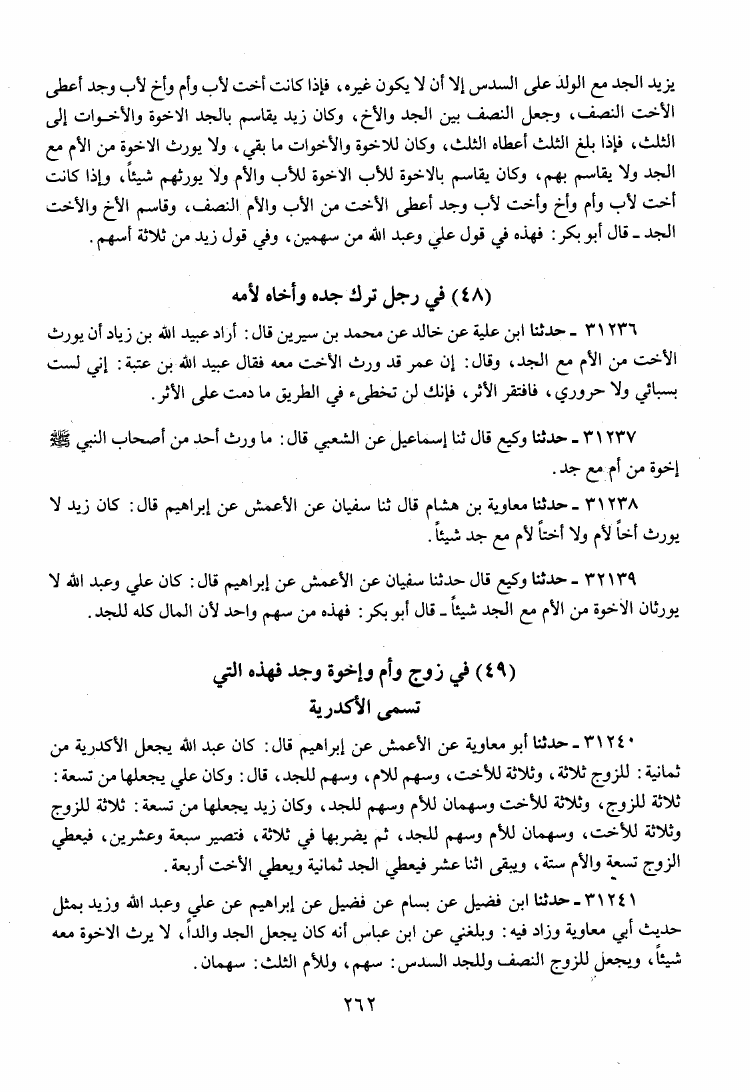 يزيد الجد مع الولد على السدس إلا أن لا يكون غيره، فإذا كانت أخت لأب وأم وأخ لأب وجد أعطى
الأخت النصف، وجعل النصف بين الجد والأخ، وكان زيد يقاسم بالجد الاخوة والأخوات إلى
الثلث، فإذا بلغ الثلث أعطاه الثلث، وكان للاخوة والأخوات ما بقي، ولا يورث الاخوة من الأم مع
الجد ولا يقاسم بهم، وكان يقاسم بالاخوة للأب الاخوة للأب والأم ولا يورثهم شيئاً، وإذا كانت
أخت لأب وأم وأخ وأخت لأب وجد أعطى الأخت من الأب والأم النصف، وقاسم الأخ والأخت
الجد ـ قال أبو بكر: فهذه في قول علي وعبد الله من سهمين، وفي قول زيد من ثلاثة أسهم.
(٤٨) في رجل ترك جده وأخاه لأمه
٣١٢٣٦ ـ حدثنا ابن علية عن خالد عن محمد بن سيرين قال: أراد عبيد الله بن زياد أن يورث
الأخت من الأم مع الجد، وقال: إن عمر قد ورث الأخت معه فقال عبيد الله بن عتبة: إني لست
بسبائي ولا حروري، فافتقر الأثر، فإنك لن تخطىء في الطريق ما دمت على الأثر.
٣١٢٣٧ ـ حدثنا وكيع قال ثنا إسماعيل عن الشعبي قال: ما ورث أحد من أصحاب النبي ﷺ
إخوة من أم مع جد.
٣١٢٣٨ ـ حدثنا معاوية بن هشام قال ثنا سفيان عن الأعمش عن إبراهيم قال: كان زيد لا
يورث أخاً لأم ولا أختاً لأم مع جد شيئاً.
٣٢١٣٩ ـ حدثنا وكيع قال حدثنا سفيان عن الأعمش عن إبراهيم قال: كان علي وعبد الله لا
يورثان الاخوة من الأم مع الجد شيئاً ـ قال أبو بكر: فهذه من سهم واحد لأن المال كله للجد.
(٤٩) في زوج وأم وإخوة وجد فهذه التي
تسمى الأكدرية
٣١٢٤٠ ـ حدثنا أبو معاوية عن الأعمش عن إبراهيم قال: كان عبد الله يجعل الأكدرية من
ثمانية: للزوج ثلاثة، وثلاثة للأخت، وسهم للام، وسهم للجد، قال: وكان علي يجعلها من تسعة:
ثلاثة للزوج، وثلاثة للأخت وسهمان للأم وسهم للجد، وكان زيد يجعلها من تسعة: ثلاثة للزوج
وثلاثة للأخت، وسهمان للأم وسهم للجد، ثم يضربها في ثلاثة، فتصير سبعة وعشرين، فيعطي
الزوج تسعة والأم ستة، ويبقى اثنا عشر فيعطي الجد ثمانية ويعطي الأخت أربعة.
٣١٢٤١ ـ حدثنا ابن فضيل عن بسام عن فضيل عن إبراهيم عن علي وعبد الله وزيد بمثل
حديث أبي معاوية وزاد فيه: وبلغني عن ابن عباس أنه كان يجعل الجد والداً، لا يرث الاخوة معه
شيئاً، ويجعل للزوج النصف وللجد السدس: سهم، وللأم الثلث: سهمان.
٢٦٢